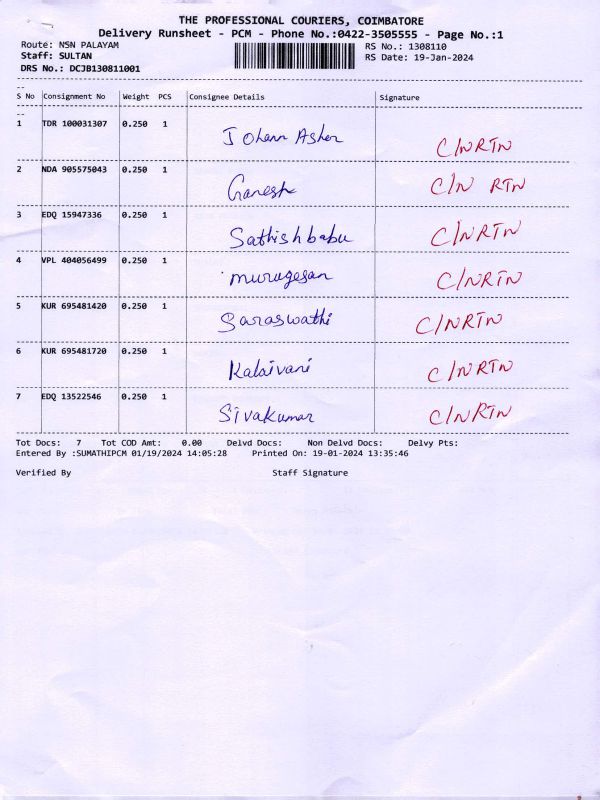 THE PROFESSIONAL COURIERS, COIMBATORE
Delivery Runsheet - PCM - Phone No.:0422-3505555 - Page No.:1
Route: NSN PALAYAM RS No.: 1308110
Staff: SULTAN RS Date: 19-Jan-2024
DRS No.: DCJB130811001
S No Consignment No Weight PCS Consignee Details Signature
1 TDR 100031307 0.250 1 Johann Asher C/NRTN
2 NDA 905575043 0.250 1 Ganesh C/N RTN
3 EDQ 15947336 0.250 1 Sathishbabu C/NRTN
4 VPL 404056499 0.250 1 murugesan C/NRTN
5 KUR 695481420 0.250 1 Saraswathi C/NRTN
6 KUR 695481720 0.250 1 Kalaivani C/NRTN
7 EDQ 13522546 0.250 1 Sivakumar C/NRTN
Tot Docs: 7 Tot COD Amt: 0.00 Delvd Docs: Non Delvd Docs: Delvy Pts:
Entered By :SUMATHIPCM 01/19/2024 14:05:28 Printed On: 19-01-2024 13:35:46
Verified By Staff Signature